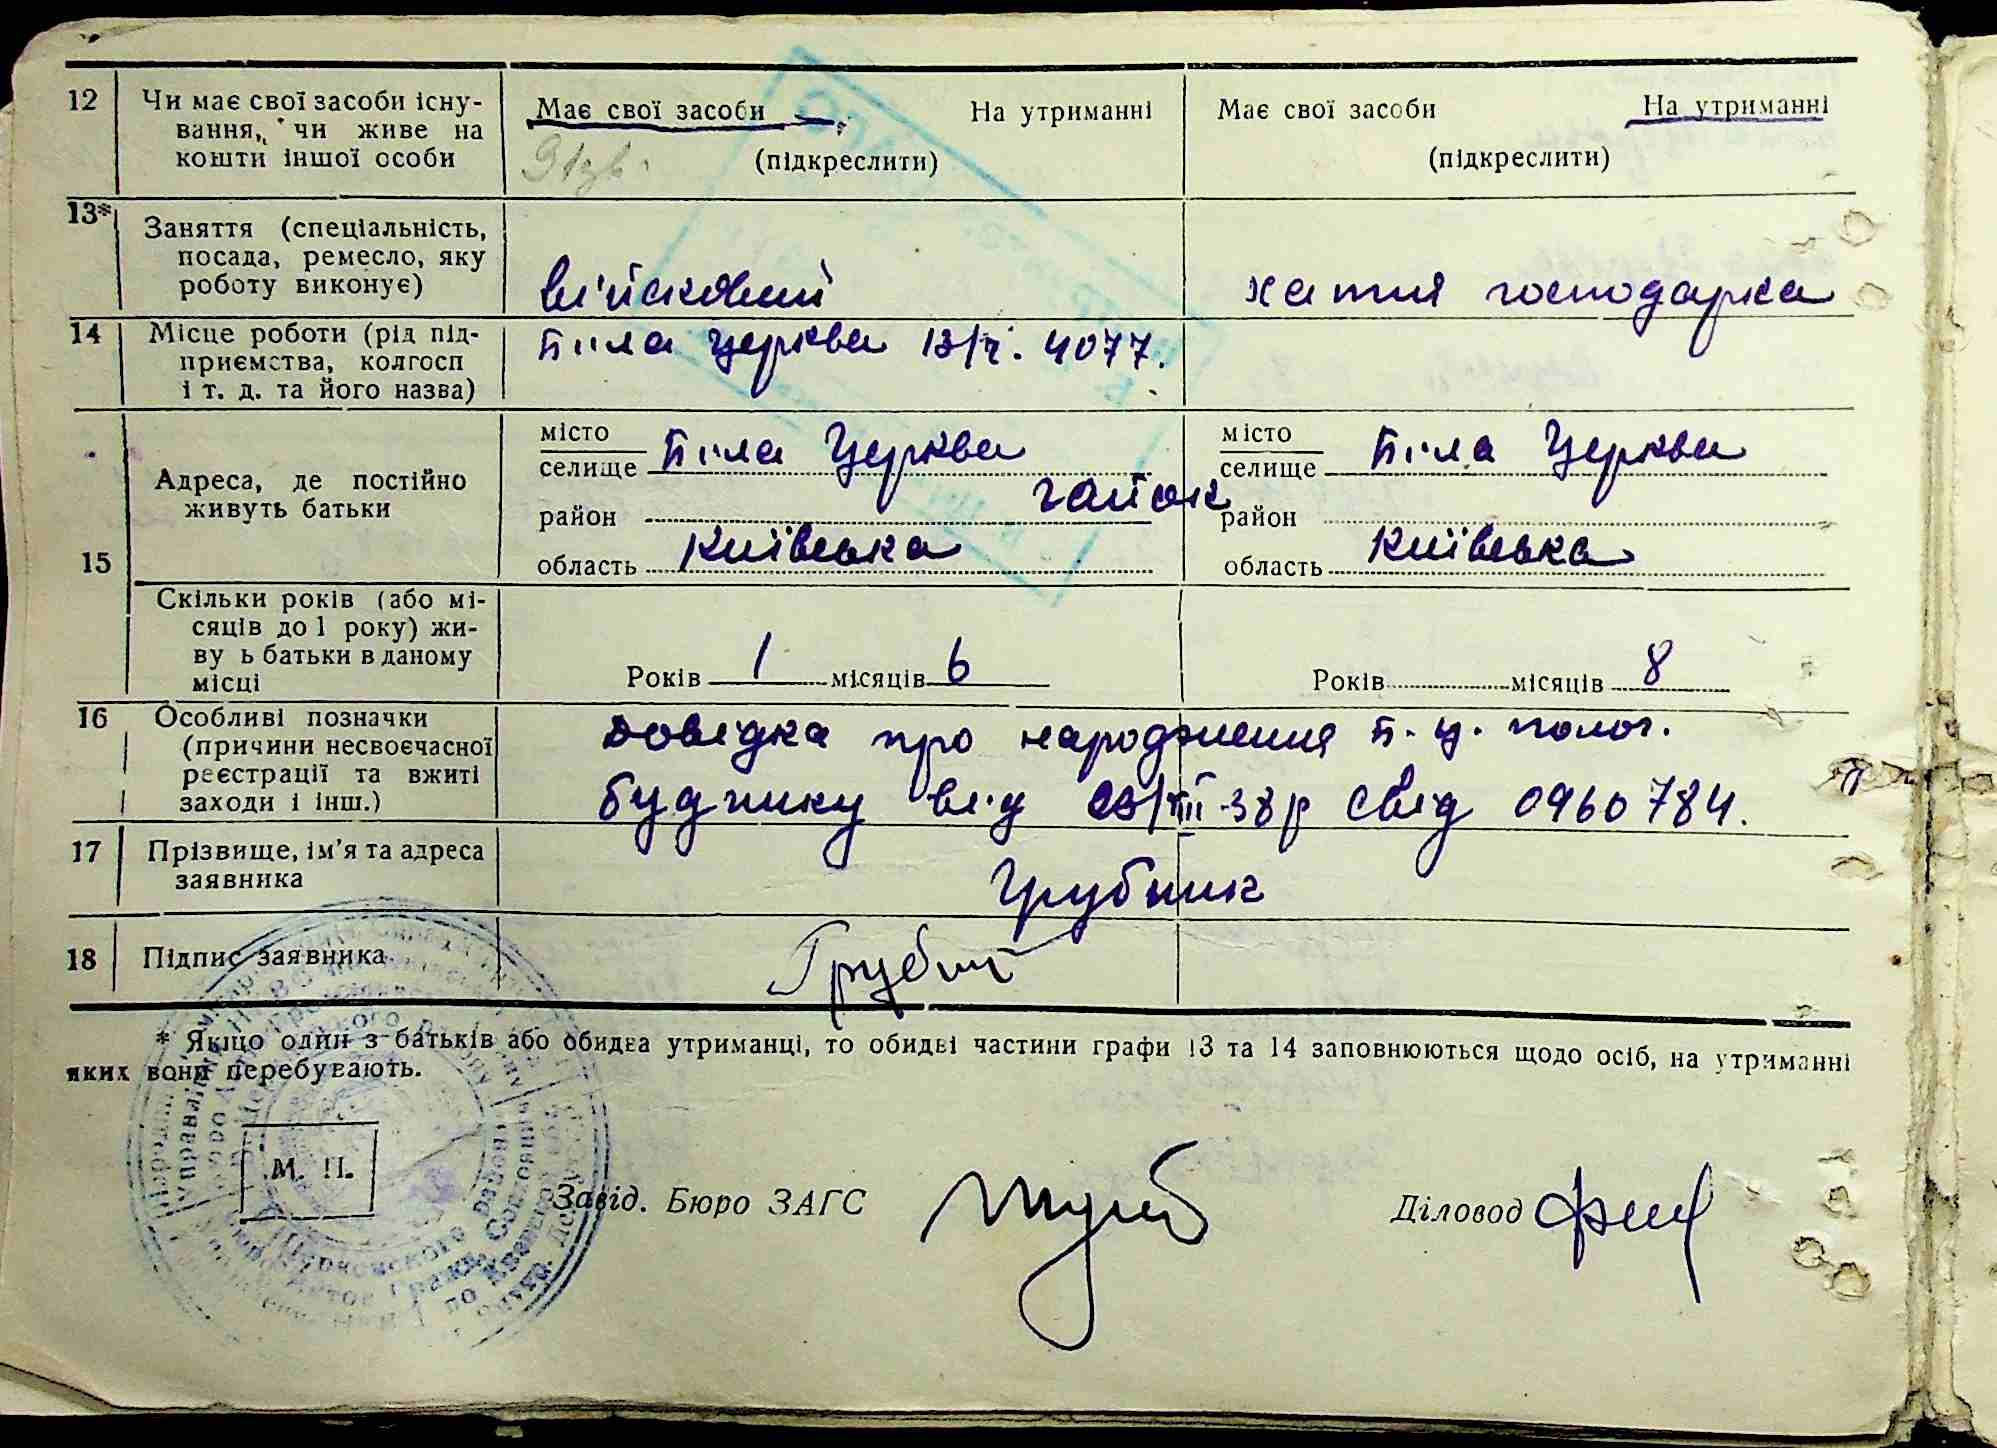 12 Чи має свої засоби існу- Має свої засоби На утриманні Має свої засоби На утриманні
вання, чи живе на
кошти іншої особи (підкреслити) (підкреслити)
13* Заняття (спеціальність,
посада, ремесло, яку
роботу виконує) військовий хатня господарка
14 Місце роботи (рід під- Біла Церква В/ч. 4077.
приємства, колгосп
і т. д. та його назва)
місто місто
селище Біла Церква селище Біла Церква
15 Адреса, де постійно
живуть батьки
район гайок район
область Київська область Київська
Скільки років (або мі-
сяців до 1 року) жи-
ву ь батьки в даному
місці Років 1 місяців 6 Років місяців 8
16 Особливі позначки Довідка про народження Б. Ц. полог.
(причини несвоєчасної
реєстрації та вжиті
заходи і інш.) будинку від /VIII-38р свід 0960784.
17 Прізвище, ім'я та адреса
заявника Грубник
18 Підпис заявника Грубни
* Якщо один з батьків або обидва утриманці, то обидві частини графи 13 та 14 заповнюються щодо осіб, на утриманні
яких вони перебувають.
М. П.
Завід. Бюро ЗАГС Діловод